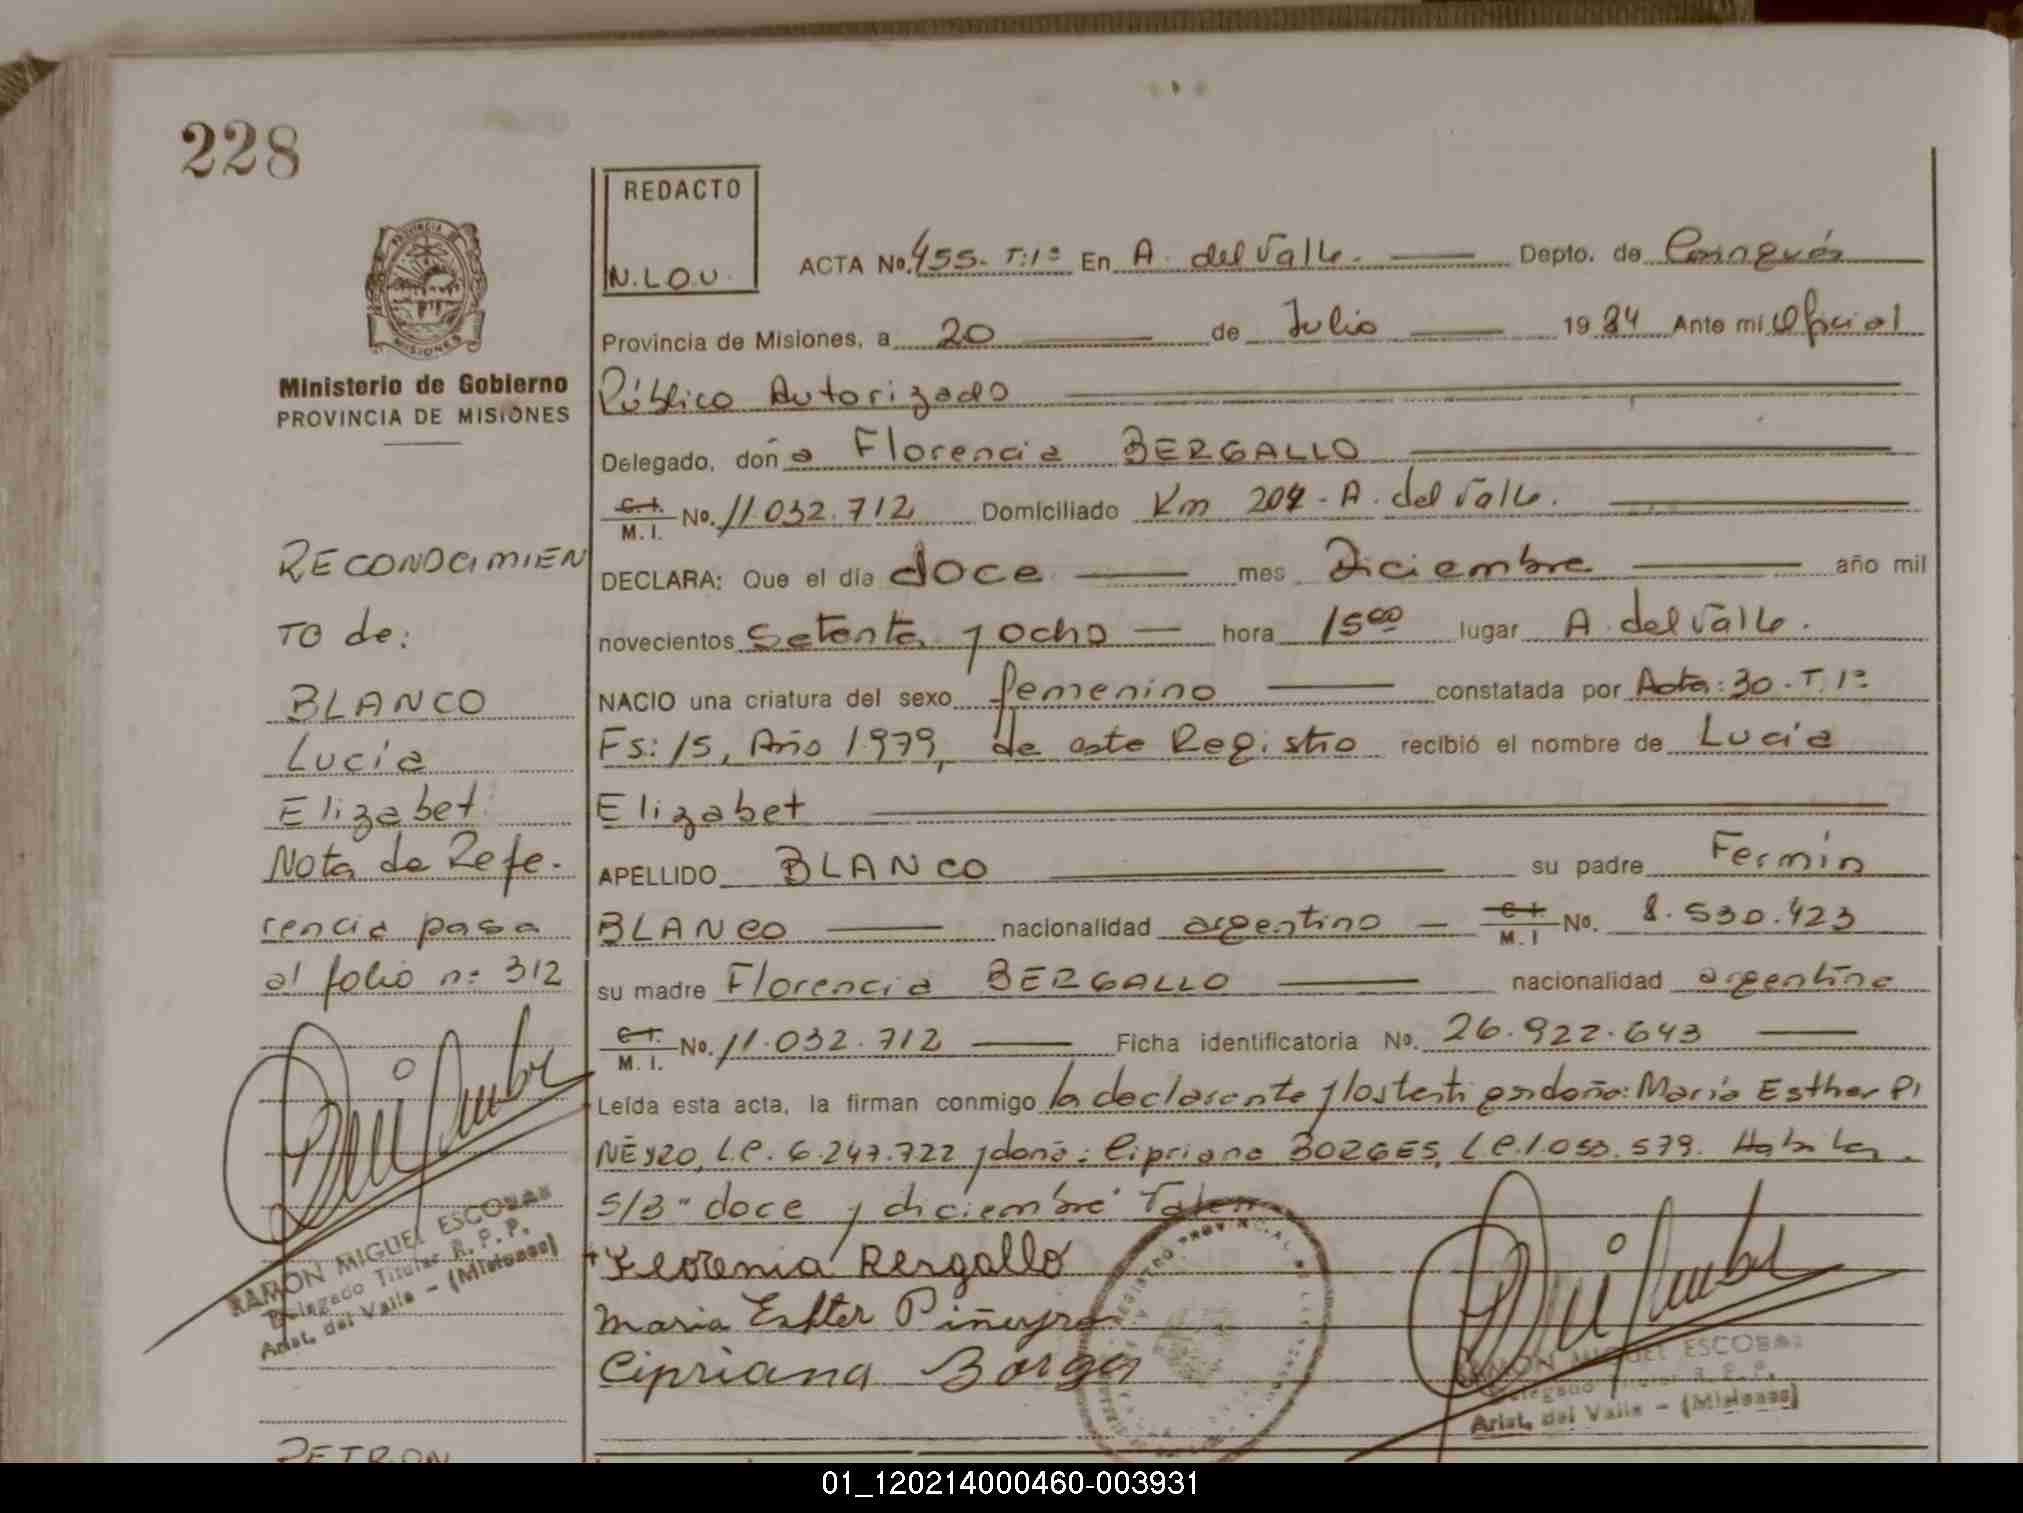 228
REDACTO
N.L.O.U.
ACTA No. 455- T:1º En A. del Valle. Depto. de Cainguás
Provincia de Misiones, a 20 de Julio 1984 Ante mi Oficial
Público Autorizado
Delegado, doña Florencia BERGALLO
C.I. M.I. No. 11.032.712 Domiciliado Km 204 - A. del Valle.
DECLARA: Que el día doce mes Diciembre año mil
novecientos setenta y ocho hora 15⁰⁰ lugar A. del Valle.
NACIO una criatura del sexo femenino constatada por Acta: 30-T.1º
Fs: 15, Año 1.979, de este Registro recibió el nombre de Lucía
Elizabet
APELLIDO BLANCO su padre Fermín
BLANCO nacionalidad argentino C.I. M.I No. 8.530.423
su madre Florencia BERGALLO nacionalidad argentina
C.I. M.I. No. 11.032.712 Ficha identificatoria No. 26.922.643
Leída esta acta, la firman conmigo la declarante y los testigos doña: María Esther PI
ÑEYRO, L.C. 6.247.722 y doña: Cipriana BORGES, L.C. 1.053.579.
S/B "doce y diciembre" Valen
Florencia Bergallo
Maria Ester Piñeyro
Cipriana Borges
PROVINCIA DE
MISIONES
Ministerio de Gobierno
PROVINCIA DE MISIONES
RECONOCIMIEN
TO de:
BLANCO
Lucía
Elizabet
Nota de Refe-
rencia pasa
al folio nº 312
RAMON MIGUEL ESCOBAR
Delegado Titular R. P. P.
Arist. del Valle - (Misiones)
REGISTRO PROVINCIAL DE LAS PERSONAS
RAMON MIGUEL ESCOBAR
Delegado Titular R. P. P.
Arist. del Valle - (Misiones)
01_120214000460-003931